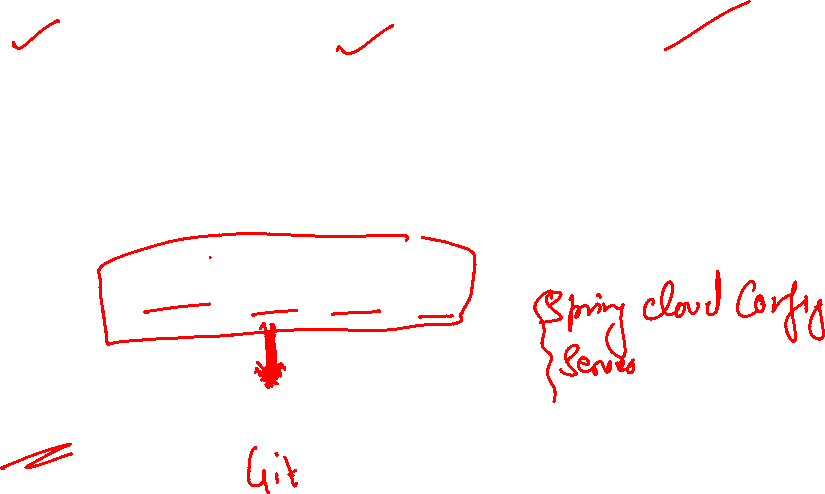 Spring cloud Config
Server
Git